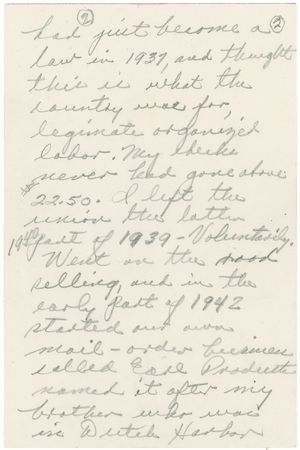 2 2
had just become a
law in 1937, and thought
this is what the
country was for,
legimate organized
labor. My checks
never had gone above
$22.50. I left the
union the latter
part of 1939 - Voluntarily.
Went on the road
selling, and in the
early part of 1942
started our own
mail-order business
called Earl Products
named it after my
brother who was
in Dutch Harbor